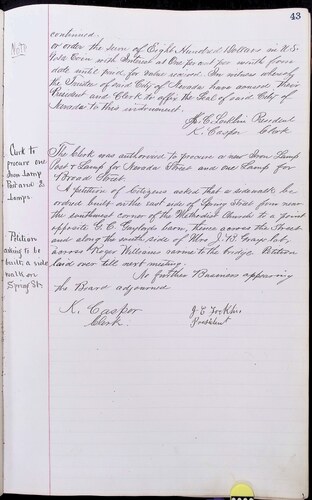 43
continued.
Note
or order the sum of Eight Hundred Dollars in U.S.
Gold Coin with Interest at One per cent per month from
date until paid for value received. In witness whereof
the Trustees of said City of Nevada have caused their
President and Clerk to affix the Seal of said City of
Nevada to this instrument.
President
K. Caspar Clerk
Clerk to
procure one
Iron Lamp
Post and 2
Lamps
The Clerk was authorized to procure a new Iron Lamp
Post & Lamp for Nevada Street and one Lamp for
Broad Street.
A petition of Citizens asked that a sidewalk be
ordered built on the east side of Spring Street from near
the southwest corner of the Methodist Church to a point
opposite C. C. barn, thence across the Street
and along the south side of Mrs J. B. Grays lot,
across Roger Williams ravine to the bridge. Petition
laid over till next meeting.
Petition
asking to be
built a side
walk on
Spring St.
No further Business appearing
the Board adjourned
K. Caspar
Clerk.
President